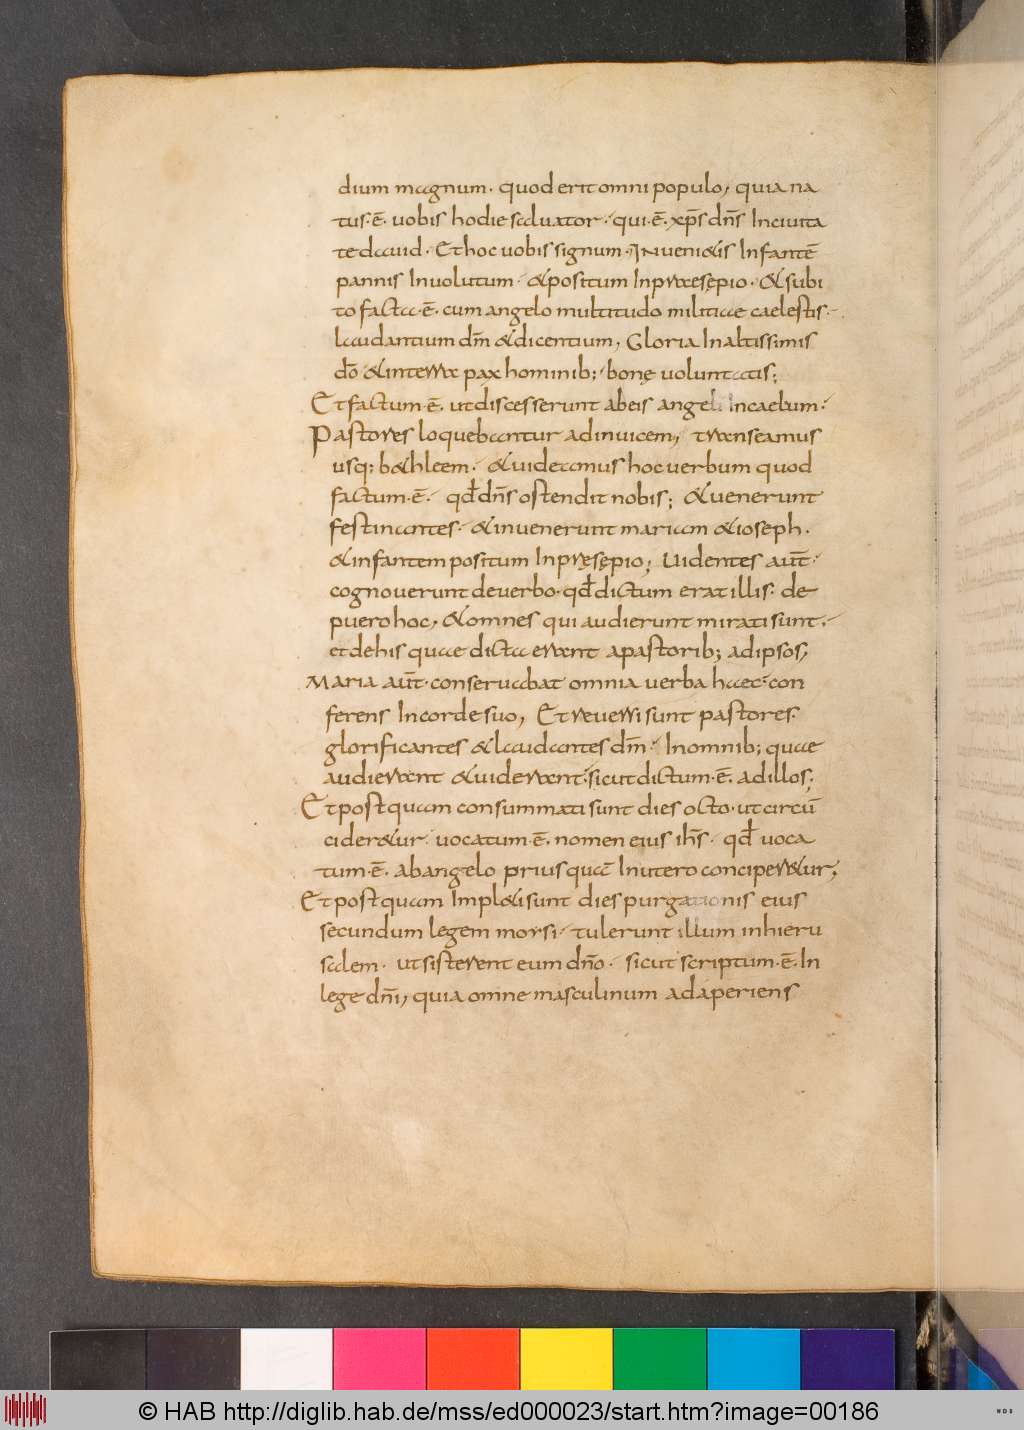 dium magnum· quod erit omni populo, quia na
tus·ē· uobis hodie saluator· qui·ē· xp̄s dn̄s Inciuita
te dauid· Et hoc uobis signum· Inueni&is Infantē
pannis Inuolutum· &positum Inpraesepio· &subi
to facta·ē· cum angelo multitudo militiae caelestis·
laudantium dm̄ &dicentium, Gloria Inaltissimis
dō &interra pax hominib; bonę uoluntatis;
Et factum·ē· ut discesserunt abeis angeli Incaelum·
Pastores loquebantur adinuicem, transeamus
usq; b&hleem· &uideamus hoc uerbum quod
factum·ē· qđ dn̄s ostendit nobis; &uenerunt
festinantes· &inuenerunt mariam &ioseph·
&infantem positum Inpręsępio; Uidentes aut̄·
cognouerunt deuerbo· qđ dictum erat illis· de
puero hoc, &omnes qui audierunt mirati sunt,
et dehis quae dicta erant apastorib; adipsos,
Maria aut̄· conseruabat omnia uerba haec· con
ferens Incorde suo, Et reuersi sunt pastores·
glorificantes &laudantes dm̄· Inomnib; quae
audierant &uiderant· sicut dictum·ē· adillos;
Et postquam consummati sunt dies octo· ut circū
cider&ur· uocatum·ē· nomen eius ih̄s· qđ uoca
tum·ē· abangelo priusquā Inutero conciper&ur,
Et postquam Impl&i sunt dies purgationis eius
secundum legem morsi· tulerunt illum inhieru
salem· ut sisterent eum dn̄o· sicut scriptum·ē· In
lege dn̄i, quia omne masculinum adaperiens
© HAB http://diglib.hab.de/mss/ed000023/start.htm?image=00186